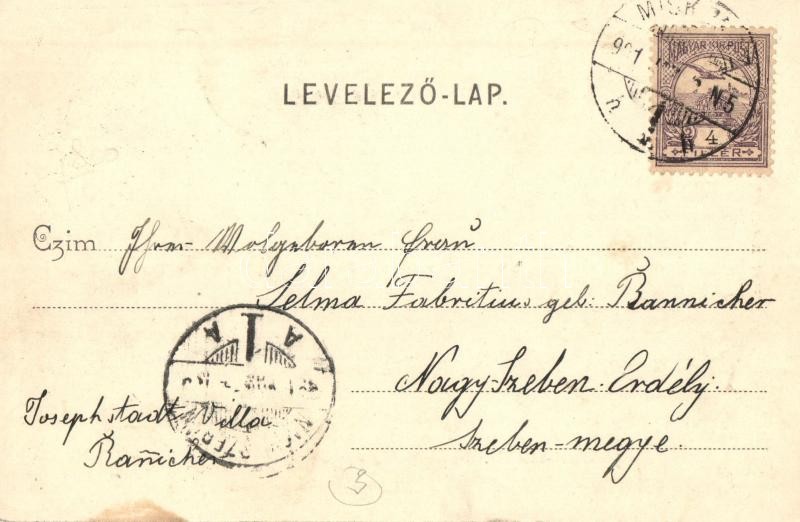 MISK
901
N5
MAGYAR KIR. POSTA
4
FILLÉR
LEVELEZŐ-LAP.
Czim Ihrer Wolgeboren Frau
Selma Fabritius geb: Bannicher
Nagy-Szeben. Erdély.
Szeben-megye.
Josephstadt Villa
Rañicher
A A
3